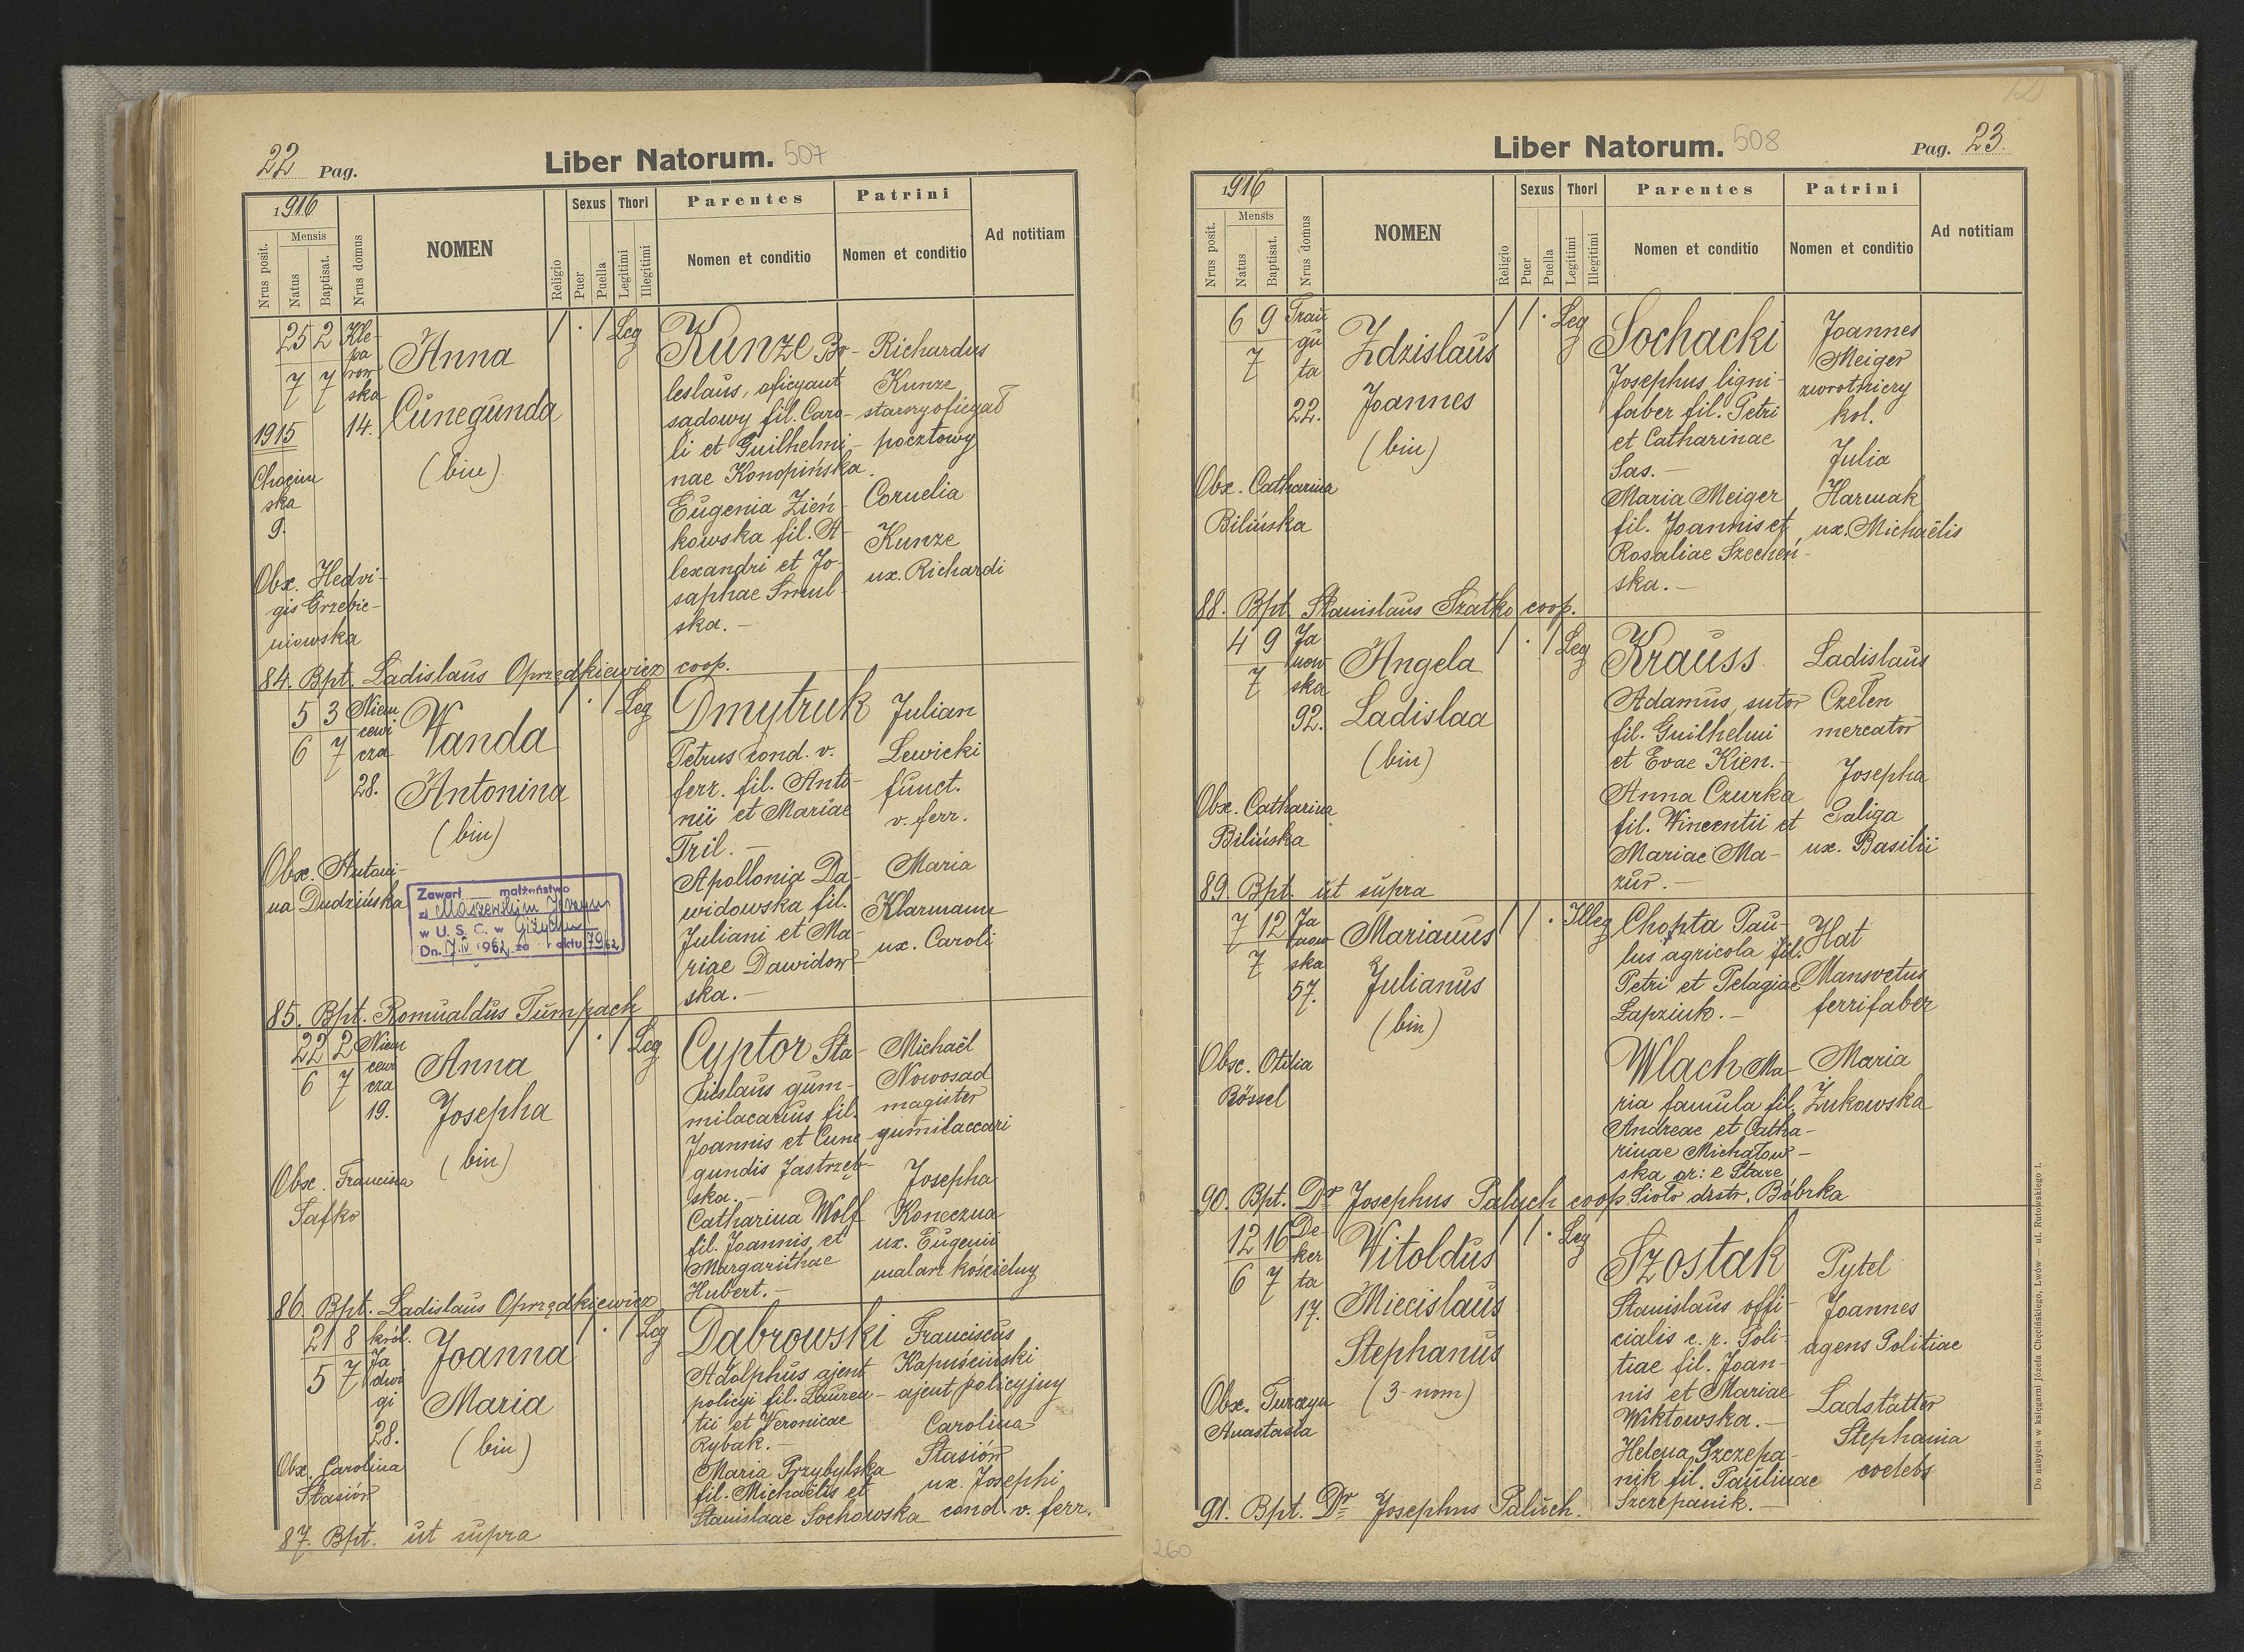 22 Pag.
Liber Natorum. 507
1916
Nrus posit.
Mensis
Natus
Baptisat.
Nrus domus
NOMEN
Religio
Sexus
Puer
Puella
Thori
Legitimi
Illegitimi
Parentes
Nomen et conditio
Patrini
Nomen et conditio
Ad notitiam
25 2
7 7
1915
Kle-
pa
row
ska
14.
Chocim
ska
9.
Obx. Hedvi-
gis Grzebie-
niowska
Anna
Cunegunda
(bin)
/ . / Leg
Kunze Bo-
leslaus, oficyant
sądowy fil. Caro-
li et Guilhelmi-
nae Konopińska.
Eugenia Zień-
kowska fil. A-
lexandri et Jo-
saphae Smul-
ska.-
Richardus
Kunze
starszy oficyał
pocztowy
Cornelia
Kunze
ux. Richardi
84. Bpt. Ladislaus Oprzędkiewicz coop.
5 3
6 7
Niem
cewi
cza
28.
Obx. Antoni-
na Dudzińska
Wanda
Antonina
(bin)
/ . / Leg
Zawarł małżeństwo
z Maszewskim Jerzym
w U. S. C. w Giżycku
Dn. 17.IV 1962 za aktu 79/62
Dmytruk
Petrus cond. v.
ferr. fil. Anto-
nii et Mariae
Tril.-
Apollonia Da-
widowska fil.
Juliani et Ma-
riae Dawidow-
ska.-
Julian
Lewicki
funct.
v. ferr.
Maria
Klarmann
ux. Caroli
85. Bpt. Romualdus Tumpach
22 2
6 7
Niem
cewi
cza
19.
Obx. Francisca
Safko
Anna
Josepha
(bin)
/ . / Leg
Cyptor Sta-
nislaus gum-
milacarius fil.
Joannis et Cune-
gundis Jastrzęb-
ska.-
Catharina Wolf
fil. Joannis et
Margarithae
Hubert.-
Michaël
Nowosad
magister
gumilaccari
Josepha
Koneczna
ux. Eugenii
malarz kościelny
86. Bpt. Ladislaus Oprzędkiewicz
21 8
5 7
król.
Ja
dwi
gi
28.
Obx. Carolina
Stasiów
Joanna
Maria
(bin)
/ . / Leg
Dąbrowski
Adolphus ajent
policyi fil. Lauren-
tii et Veronicae
Rybak.-
Maria Przybylska
fil. Michaëlis et
Stanislaae Sochowska
Franciscus
Kapuściński
ajent policyjny
Carolina
Stasiów
ux. Josephi
cond. v. ferr.
87. Bpt. ut supra
Liber Natorum. 508
Pag. 23.
1916
Nrus posit.
Mensis
Natus
Baptisat.
Nrus domus
NOMEN
Religio
Sexus
Puer
Puella
Thori
Legitimi
Illegitimi
Parentes
Nomen et conditio
Patrini
Nomen et conditio
Ad notitiam
6 9
7
Trau
gu
ta
22.
Obx. Catharina
Bilińska
Zdzislaus
Joannes
(bin)
/ / . Leg
Sochacki
Josephus ligni-
faber fil. Petri
et Catharinae
Sas.-
Maria Meiger
fil. Joannis et
Rosaliae Szecheń-
ska.-
Joannes
Meiger
zwrotniczy
kol.
Julia
Harmak
ux. Michaëlis
88. Bpt. Stanislaus Szatko coop.
4 9
7
Ja
now
ska
92.
Obx. Catharina
Bilińska
Angela
Ladislaa
(bin)
/ . / Leg
Krauss
Adamus sutor
fil. Guilhelmi
et Evae Kien.-
Anna Czurka
fil. Wincentii et
Mariae Ma-
zur.-
Ladislaus
Czełen
mercator
Josepha
Galiga
ux. Basilii
89. Bpt. ut supra
7 12
7
Ja
now
ska
57.
Obx. Otilia
Rössel
Marianus
Julianus
(bin)
/ / . Illeg
Chopta Pau-
lus agricola fil.
Petri et Pelagiae
Łapziuk.-
Wlach Ma-
ria famula fil.
Andreae et Catha-
rinae Michałow-
ska or: e Stare
Sioło distr. Bóbrka
Hat
Mansvetus
ferrifaber
Maria
Żukowska
90. Bpt. Dr Josephus Paluch coop.
12 16
6 7
De-
ker
ta
17.
Obx. Turczyn
Anastasia
Witoldus
Miecislaus
Stephanus
(3 nom)
/ / . Leg
Szostak
Stanislaus offi-
cialis c. r. Poli-
tiae fil. Joan-
nis et Mariae
Wiktowska.-
Helena Szczepa-
nik fil. Paulinae
Szczepanik.-
Pytel
Joannes
agens Politiae
Ladstätter
Stephania
coelebs
91. Bpt. Dr Josephus Paluch.
260
Do nabycia w księgarni Józefa Chęcińskiego, Lwów — ul. Rutowskiego 1.